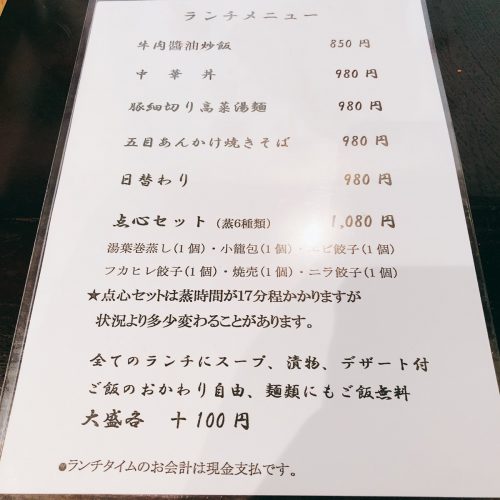 ランチメニュー
牛肉醬油炒飯 850円
中華丼 980円
豚細切り高菜湯麺 980円
五目あんかけ焼きそば 980円
日替わり 980円
点心セット（蒸6種類） 1,080円
湯葉巻蒸し(1個)・小龍包(1個)・エビ餃子(1個)
フカヒレ餃子(1個)・焼売(1個)・ニラ餃子(1個)
★点心セットは蒸時間が17分程かかりますが
状況より多少変わることがあります。
全てのランチにスープ、漬物、デザート付
ご飯のおかわり自由、麺類にもご飯無料
大盛各 ＋100円
●ランチタイムのお会計は現金支払です。